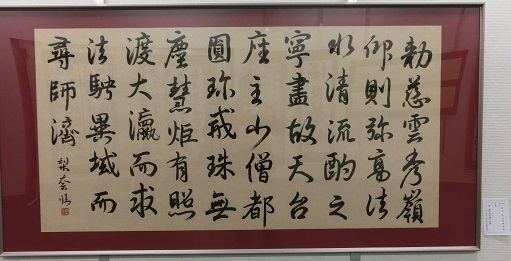 勅慈雲秀嶺
仰則弥高法
水清流酌之
寧盡故天台
座主少僧都
圓珎戒珠無
塵慧炬有照
渡大瀛而求
法騁異域而
尋師濟